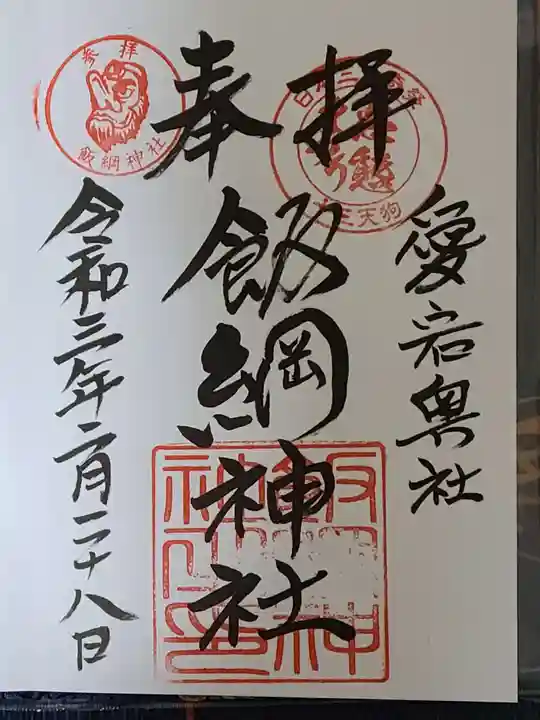 奉拝
愛宕奥社
飯綱神社
令和三年二月二十八日
参拝
飯綱神社
三天狗